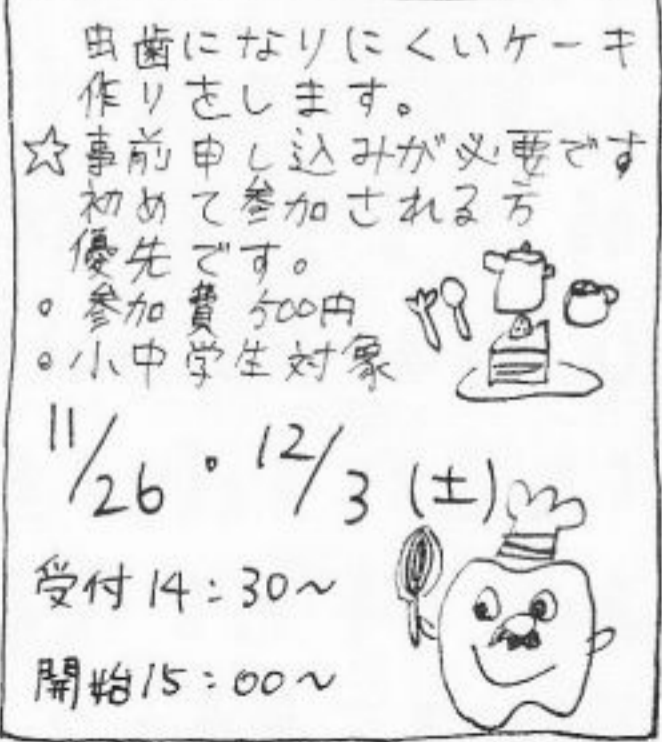 虫歯になりにくいケーキ
作りをします。
☆事前申し込みが必要です
初めて参加される方
優先です。
○参加費 500円
○小中学生対象
11/26・12/3(土)
受付14:30～
開始15:00～